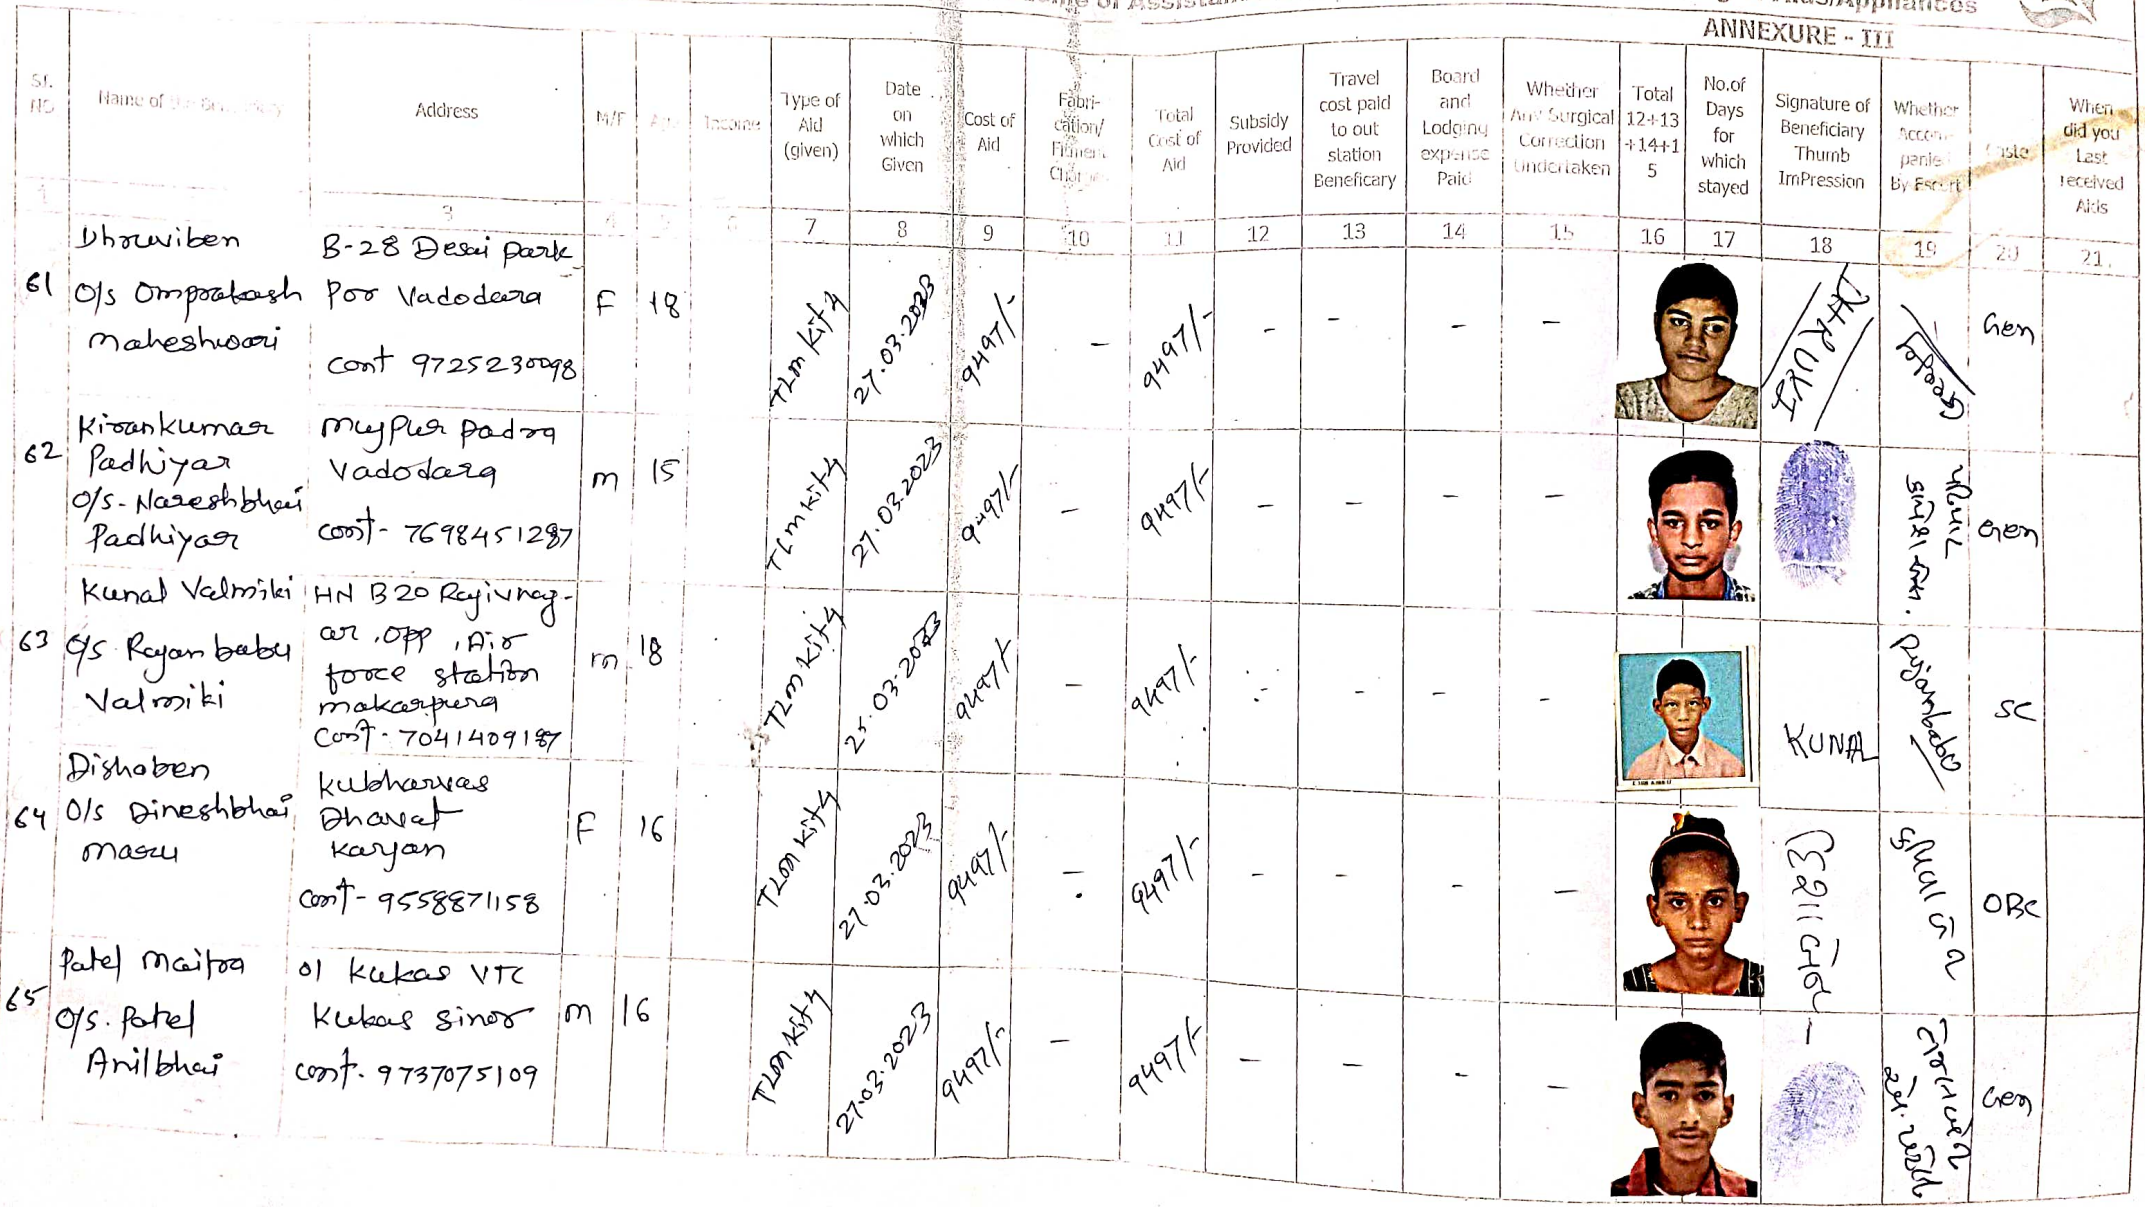 ANNEXURE - III
Sl. NO
Name of the Beneficiary
Address
M/F
Age
Income
Type of Aid (given)
Date on which Given
Cost of Aid
Fabri-cation/ Fitment Charges
Total Cost of Aid
Subsidy Provided
Travel cost paid to out station Beneficary
Board and Lodging expense Paid
Whether Any Surgical Correction Undertaken
Total 12+13 +14+1 5
No.of Days for which stayed
Signature of Beneficiary Thumb ImPression
Whether Accom-panied By Escort
Caste
When did you Last received Aids
1 3 4 5 6 7 8 9 10 11 12 13 14 15 16 17 18 19 20 21.
61
Dhruviben
O/s Omprakash
maheshwari
B-28 Desai park
Por Vadodara
cont 9725230098
F 18 TLM kit 4 27.03.2023 9497/- - 9497/- - - - - DHRUVI Gen
62
Kirankumar
Padhiyar
O/s- Nareshbhai
Padhiyar
mujpur padra
vadodara
cont- 7698451287
m 15 TLM kit 4 27.03.2023 9497/- - 9497/- - - - - Gen
63
Kunal Valmiki
O/s Rajan babu
Valmiki
HN B20 Rajivnag-
ar, opp, Air
force station
makarpura
Cont- 7041409187
m 18 TLM kit 4 25.03.2023 9497/- - 9497/- - - - - KUNAL Rijanbabo SC
64
Dishaben
O/s Dineshbhai
maru
Kubharvas
Dhavat
karjan
cont- 9558871158
F 16 TLM kit 4 27.03.2023 9497/- - 9497/- - - - - દિશા બેન OBC
65
Patel maitra
O/s. Patel
Anilbhai
01 kukas VTC
Kukas sinor
cont. 9737075109
m 16 TLM kit 4 27.03.2023 9497/- - 9497/- - - - - - Gen